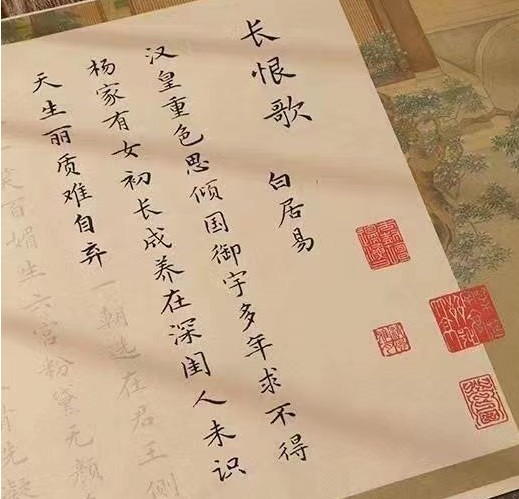 长恨歌 白居易
汉皇重色思倾国御宇多年求不得
杨家有女初长成养在深闺人未识
天生丽质难自弃
一朝选在君王侧
笑百媚生六宫粉黛无颜